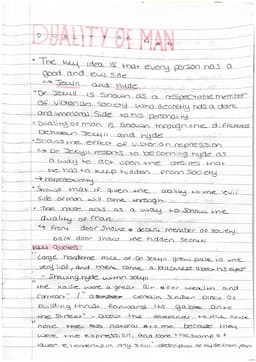 DUALITY OF MAN
• The key idea is that every person has a
good and evil side
↳ Jekyll and Hyde
• Dr Jekyll is shown as a respectable member
of victorian society who secretly has a dark
and immoral side to his personality
• Duality of man is shown through the difference
between Jekyll and Hyde
• Shows the effect of victorian repression
↳ Dr Jekyll resorts to becoming hyde as
a way to act upon the desires that
he has to keep hidden from society
• Shows that if given the ability to the 'evil'
side of man will come through
• The house acts as a way to shows the
duality of man
↳ front door shows a decent member of society,
back door shows the hidden secrets
Key Quotes
"Large handsome face of Dr Jekyll grew pale to the
very lips, and there came a blackness about his eyes"
- Showing hyde within Jekyll
the house wore a great air of wealth and
comfort" / "a certain sinister block of
building thrust forward its gable onto
the street" - about the
none the less natural to me because they
were the expression, and bore the stamp of
lower elements in my soul - description of hyde from Jekyll